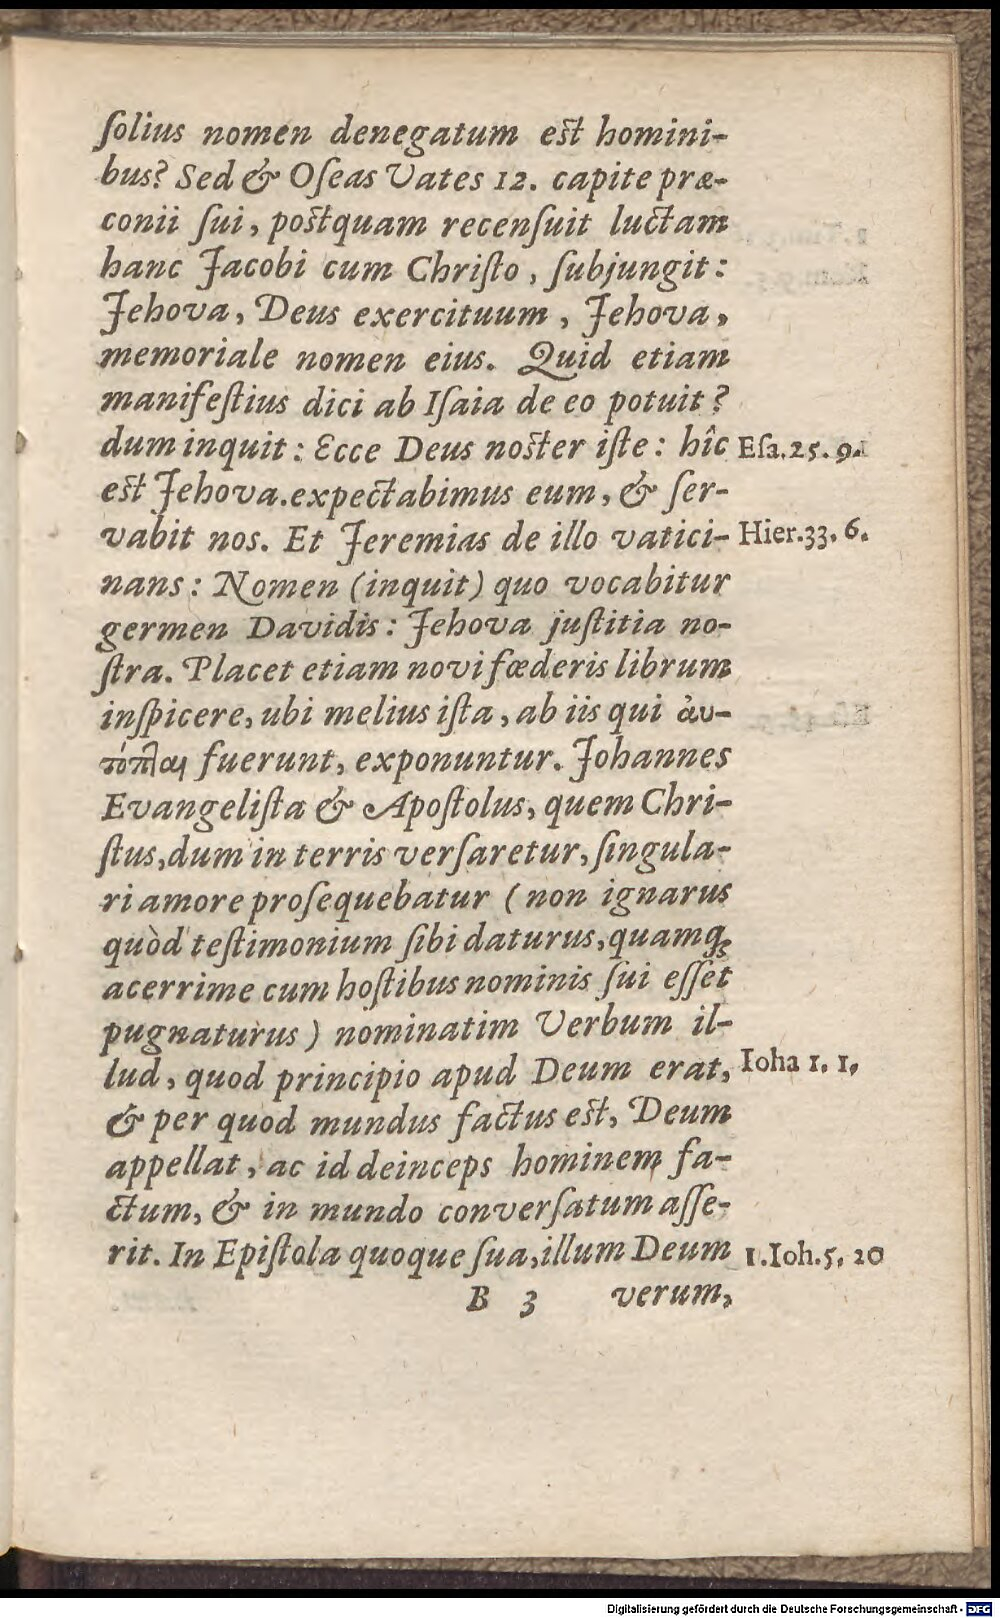 ſolius nomen denegatum eſt homini-
bus? Sed & Oſeas Vates 12. capite præ-
conii ſui, poſtquam recenſuit luctam
hanc Jacobi cum Chriſto, ſubjungit:
Jehova, Deus exercituum, Jehova,
memoriale nomen eius. Quid etiam
manifeſtius dici ab Iſaia de eo potuit?
dum inquit: Ecce Deus noſter iſte: hîc Eſa. 25. 9.
eſt Jehova. expectabimus eum, & ſer-
vabit nos. Et Jeremias de illo vatici- Hier. 33. 6.
nans: Nomen (inquit) quo vocabitur
germen Davidis: Jehova juſtitia no-
ſtra. Placet etiam novi fœderis librum
inſpicere, ubi melius iſta, ab iis qui ἀυ-
τόπται fuerunt, exponuntur. Johannes
Evangeliſta & Apoſtolus, quem Chri-
ſtus, dum in terris verſaretur, ſingula-
ri amore proſequebatur (non ignarus
quòd teſtimonium ſibi daturus, quamq́;
acerrime cum hoſtibus nominis ſui eſſet
pugnaturus) nominatim Verbum il-
lud, quod principio apud Deum erat, Ioha 1. 1.
& per quod mundus factus eſt, Deum
appellat, ac id deinceps hominem fa-
ctum, & in mundo converſatum aſſe-
rit. In Epiſtola quoque ſua, illum Deum 1. Ioh. 5. 20
B 3 verum,
Digitalisierung gefördert durch die Deutsche Forschungsgemeinschaft - DFG